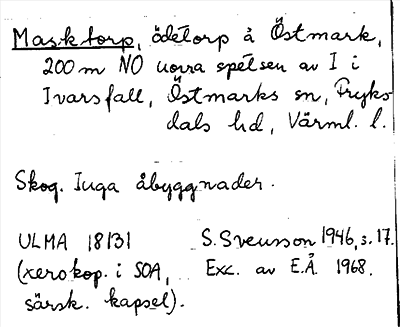 Masktorp, ödetorp å Östmark,
200 m NO norra spetsen av I i
Ivarsfall, Östmarks sn, Fryks-
dals hd, Värml. l.
Skog. Inga åbyggnader.
ULMA 18131 S. Svensson 1946, s. 17.
(xerokop. i SOA, Exc. av E.Å. 1968.
särsk. kapsel).